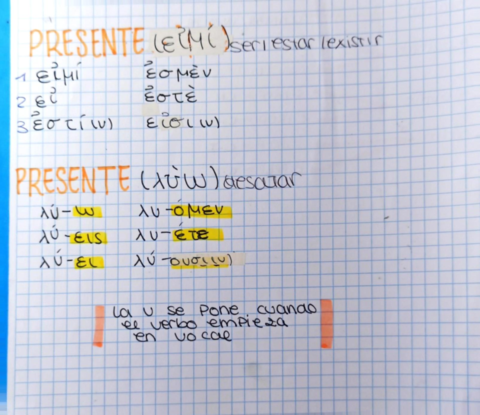 PRESENTE (εἰμί) ser/estar/existir
1 εἰμί ἐσμὲν
2 εἶ ἐστὲ
3 ἐστί(ν) εἰσι(ν)
PRESENTE (λὺω) desatar
λύ-ω λυ-όμεν
λύ-εις λυ-έτε
λύ-ει λύ-ουσι(ν)
La ν se pone cuando
el verbo empieza
en vocal